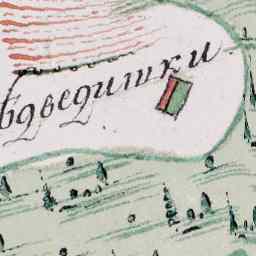 вдведишки